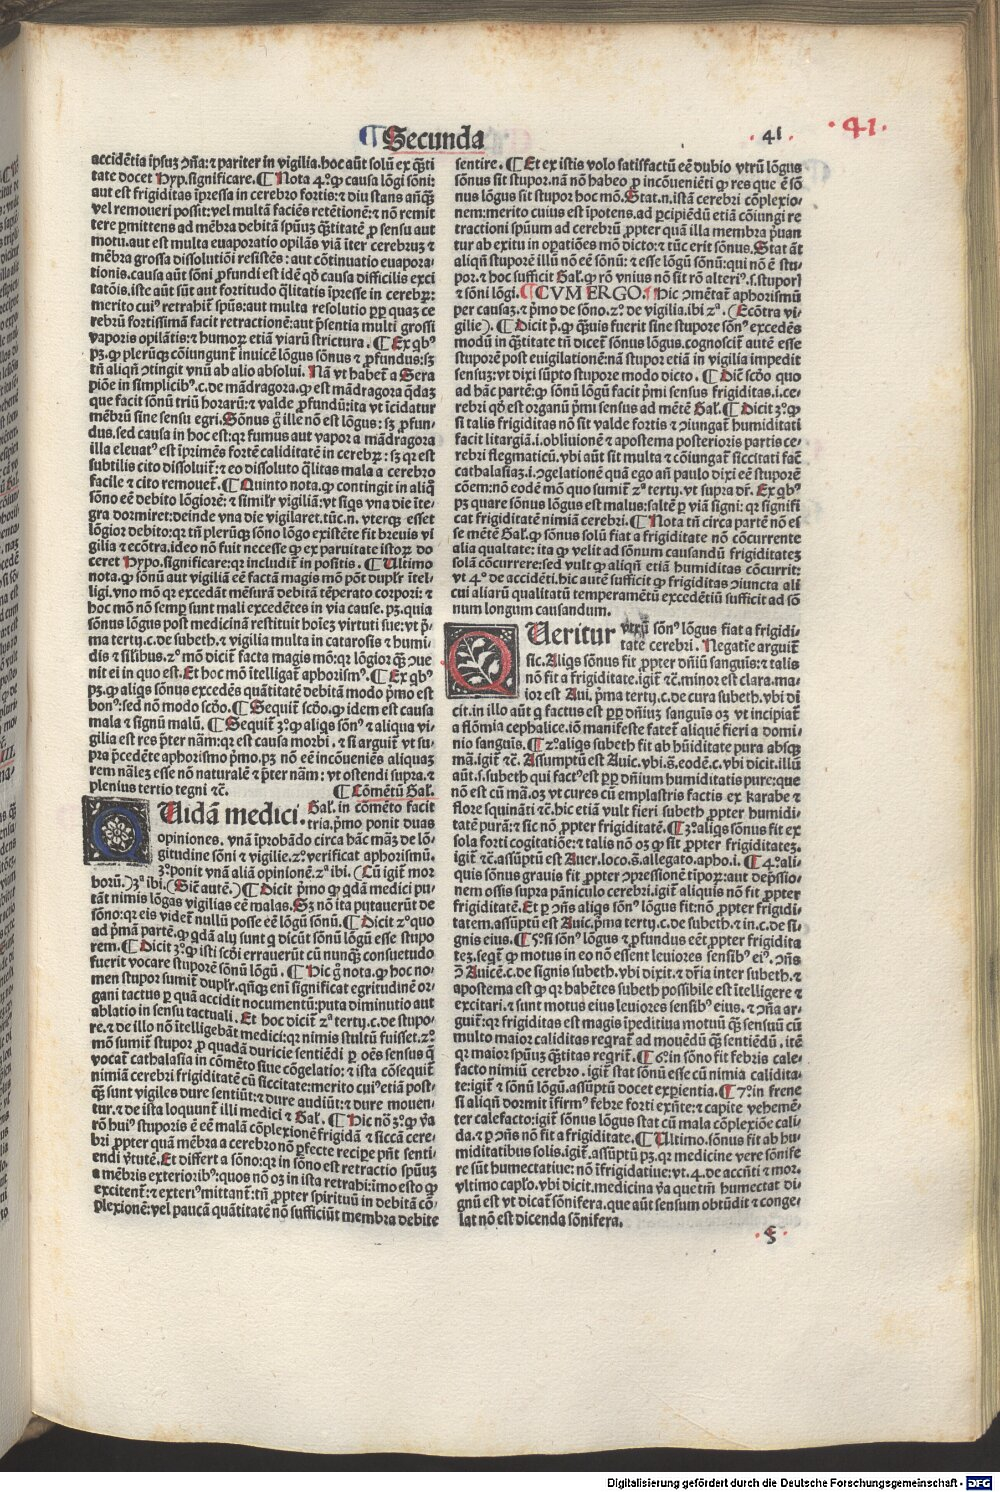 ¶ Secunda
41
· 41 ·
accidētia ip̄suȝ ɔña: ⁊ pariter in vigilia. hoc aūt solū ex q̄ti
tate docet Hyp. significare. ¶ Nota 4.º ꝙ causa lōgi sōni:
aut est frigiditas īpressa in cerebro fortis: ⁊ diu stans añq̄
vel remoueri possit: vel multā faciēs retētionē: ⁊ nō remit
tere ꝑmittens ad mēbra debitā spūuȝ q̄titatē ꝓ sensu aut
motu. aut est multa euaporatio opilās viā īter cerebruȝ ⁊
mēbra grossa dissolutiōi resistēs: aut cōtinuatio euapora-
tionis. causa aūt sōni ꝓfundi est idē qḋ causa difficilis exci
tatōis. iste aūt sūt aut fortitudo q̄litatis īpresse in cerebꝝ:
merito cuiꝰ retrahit̄ spūs: aut multa resolutio ꝑꝑ quaȝ ce
rebrū fortissimā facit retractionē: aut p̄sentia multi grossi
vaporis opilātis: ⁊ humoꝝ etiā viarū strictura. ¶ Ex qḃꝰ
pȝ. ꝙ plerūqȝ cōiungunt̄ inuicē lōgus sōnus ⁊ ꝓfundus: sȝ
tñ aliqñ ɔtingit vnū ab alio absolui. Nā vt habet̄ a Sera
piōe in simplicibꝰ. c. de mādragora. ꝙ est mādragora q̄daȝ
que facit sōnū triū horarū: ⁊ valde ꝓfundū: ita vt īcidatur
mēbrū sine sensu egri. Sōnus g̊ ille nō est lōgus: sȝ ꝓfun-
dus. sed causa in hoc est: qꝛ fumus aut vapor a mādragora
illa eleuatꝰ est īprimēs fortē caliditatē in cerebꝝ: sȝ qꝛ est
subtilis cito dissoluit̄: ⁊ eo dissoluto q̄litas mala a cerebro
facile ⁊ cito remouet̄. ¶ Quinto nota. ꝙ contingit in aliq̊
sōno eē debito lōgiorē: ⁊ similꝛ vigiliā: vt siqs vna die īte-
gra dormiret: deinde vna die vigilaret. tūc. n. vterqȝ esset
lōgior debito: qꝛ tñ plerūqȝ sōno lōgo existēte fit breuis vi
gilia ⁊ ecōtra. ideo nō fuit necesse ꝙ ex paruitate istoꝝ do
ceret Hypo. significare: qꝛ includit̄ in positis. ¶ Ultimo
nota. ꝙ sōnū aut vigiliā eē factā magis mō pōt duplꝛ ītel-
ligi. vno mō qꝛ excedāt mēsurā debitā tēperato corpori: ⁊
hoc mō nō semꝑ sunt mali excedētes in via cause. pȝ. quia
sōnus lōgus post medicinā restituit hoīeȝ virtuti sue: vt p̄-
ma tertij. c. de subeth. ⁊ vigilia multa in catarosis ⁊ humi-
dis ⁊ silibus. 2º mō dicit̄ facta magis mō: qꝛ lōgior q̄ȝ ɔue
nit ei in quo est. Et hoc mō ītelligat̄ aphorismꝰ. ¶ Ex qḃꝰ
pȝ. ꝙ aliqs sōnus excedēs quātitatē debitā modo p̄mo est
bonꝰ: sed nō modo scḋo. ¶ Sequit̄ scḋo. ꝙ idem est causa
mala ⁊ signū malū. ¶ Sequit̄ 3º. ꝙ aliqs sōnꝰ ⁊ aliqua vi-
gilia est res p̄ter nām: qꝛ est causa morbi. ⁊ si arguit̄ vt su-
pra p̄cedēte aphorismo p̄mo. pȝ nō eē incōueniēs aliquaȝ
rem nālez esse nō naturalē ⁊ p̄ter nām: vt ostendi supra. ⁊
plenius tertio tegni ⁊c̄. ¶ Cōmētū Gal.
QUidā medici. Gal. in cōmēto facit
tria. p̄mo ponit duas
opiniones. vnā īprobādo circa hāc māȝ de lō-
gitudine sōni ⁊ vigilie. 2º. verificat aphorismū.
3º. ponit vnā aliā opinionē. 2ª ibi. (Cū igit̄ mor
borū.) 3ª ibi. (Sic autē.) ¶ Dicit p̄mo ꝙ q̄dā medici pu-
tāt nimis lōgas vigilias eē malas. Sȝ nō ita putauerūt de
sōno: qꝛ eis videt̄ nullū posse eē lōgū sōnū. ¶ Dicit 2º quo
ad p̄mā partē. ꝙ q̄dā alij sunt q̇ dicūt sōnū lōgū esse stupo
rem. ¶ Dicit 3º. ꝙ isti scḃi errauerūt cū nunq̄ȝ consuetudo
fuerit vocare stuporē sōnū lōgū. ¶ Hic g̊ nota. ꝙ hoc no-
men stupor sumit̄ duplꝛ. qñqȝ eni significat egritudinē or-
gani tactus ꝑ quā accidit nocumentū: puta diminutio aut
ablatio in sensu tactuali. Et hoc dicit̄ 2ª tertij. c. de stupo-
re. ⁊ de illo nō ītelligebāt medici: qꝛ nimis stultū fuisset. 2º
mō sumit̄ stupor ꝓ quadā duricie sentiēdi ꝑ oēs sensus q̄
vocat̄ cathalasia in cōmēto siue cōgelatio: ⁊ ista cōsequit̄
nimiā cerebri frigiditatē cū siccitate: merito cuiꝰ etiā post-
q̄ȝ sunt vigiles dure sentiūt: ⁊ dure audiūt: ⁊ dure mouen-
tur. ⁊ de ista loquunt̄ illi medici ⁊ Gal. ¶ Hic nō 3º. ꝙ v̄a
rō huiꝰ stuporis ē eē malā cōplexionē frigidā ⁊ siccā cere-
bri ꝓpter quā mēbra a cerebro nō ꝑfecte recipe pñt senti-
endi v̄tutē. Et differt a sōno: qꝛ in sōno est retractio spūuȝ
a mēbris exterioribꝰ: quos nō oȝ in ista retrahi: imo esto ꝙ
excitent̄: ⁊ exteriꝰ mittant̄: tñ ꝓpter spirituū in debitā cō-
plexionē: vel paucā quātitatē nō sufficiūt membra debite
sentire. ¶ Et ex istis volo satisfactū eē dubio vtrū lōgus
sōnus sit stupor. nā nō habeo ꝓ incōueniēti ꝙ res que ē sō
nus lōgus sit stupor hoc mō. Stat. n. istā cerebri cōplexio-
nem: merito cuius est īpotens. ad ꝑcipiēdū etiā cōiungi re
tractioni spūum ad cerebrū ꝓpter quā illa membra p̄uan
tur ab exitu in oꝑatiōes mō dicto: ⁊ tūc erit sōnus. Stat āt
aliqñ stuporē illū nō eē sōnū: ⁊ esse lōgū sōnū: qui nō ē stu-
por. ⁊ hoc sufficit Gal. ꝙ rō vnius nō sit rō alteriꝰ. s. stupori
⁊ sōni lōgi. ¶ CVM ERGO. ¶ Hic ɔmētat̄ aphorismū
per causaȝ. ⁊ p̄mo de sōno. 2º. de vigilia. ibi 2ª. (Ecōtra vi-
gilie). ¶ Dicit p̄. ꝙ q̄uis fuerit sine stupore sōnꝰ excedēs
modū in q̄titate tñ dicet̄ sōnus lōgus. cognoscit̄ autē esse
stuporē post euigilationē: nā stupor etiā in vigilia impedit
sensuȝ: vt dixi sūpto stupore modo dicto. ¶ Dic̄ scḋo quo
ad hāc partē: ꝙ sōnū lōgū facit p̄mi sensus frigiditas. i. ce-
rebri qḋ est organū p̄mi sensus ad mētē Gal. ¶ Dicit 3º. ꝙ
si talis frigiditas nō sit valde fortis ⁊ ɔiungat̄ humiditati
facit litargiā. i. obliuionē ⁊ apostema posterioris partis ce-
rebri flegmaticū. vbi aūt sit multa ⁊ cōiungat̄ siccitati fac̄
cathalasiaȝ. i. ɔgelationē quā ego añ paulo dixi eē stuporē
cōem: nō eodē mō quo sumit̄ 2ª tertij. vt supra dr̄. Ex qḃꝰ
pȝ quare sōnus lōgus est malus: saltē ꝑ viā signi: qꝛ signifi
cat frigiditatē nimiā cerebri. ¶ Nota tñ circa partē nō es
se mētē Gal. ꝙ sōnus solū fiat a frigiditate nō cōcurrente
alia qualtate: ita ꝙ velit ad sōnum causandū frigiditateȝ
solā cōcurrere: sed vult ꝙ aliqñ etiā humiditas cōcurrit:
vt 4º de accidēti. hic autē sufficit ꝙ frigiditas ɔiuncta ali
cui aliarū qualitatū temperamētū excedētiū sufficit ad sō
num longum causandum.
QUeritur vtrū sōnꝰ lōgus fiat a frigidi-
tate cerebri. Negatīe arguit̄
sic. Aliqs sōnus fit ꝓpter dñiū sanguīs: ⁊ talis
nō fit a frigiditate. igit̄ ⁊c̄. minor est clara. ma-
ior est Aui. p̄ma tertij. c. de cura subeth. vbi di
cit. in illo aūt q̇ factus est ꝑꝑ dñiuȝ sanguīs oȝ vt incipiat̄
a flōmia cephalice. iō manifeste fatet̄ aliquē fieri a domi-
nio sanguīs. ¶ 2º. aliqs subeth fit ab hūiditate pura absqȝ
mā. igit̄ ⁊c̄. Assumptū est Auic. vbi. s̄. eodē. c. vbi dicit. illū
aūt. s. subeth qui factꝰ est ꝑꝑ dñium humiditatis pure: que
nō est cū mā. oȝ vt cures cū emplastris factis ex karabe ⁊
flore squināti ⁊c̄. hic etiā vult fieri subeth ꝓpter humidi-
tatē purā: ⁊ sic nō ꝓpter frigiditatē. ¶ 3º. aliqs sōnus fit ex
sola forti cogitatiōe: ⁊ talis nō oȝ ꝙ sit ꝓpter frigiditateȝ.
igit̄ ⁊c̄. assūptū est Auer. loco. s̄. allegato. apho. i. ¶ 4º. ali-
quis sōnus grauis fit ꝓpter ɔpressionē tīpoꝝ: aut dep̄ssio-
nem ossis supra pāniculo cerebri. igit̄ aliquis nō fit ꝓpter
frigiditatē. Et ꝑ ɔñs aliqs sōnꝰ lōgus fit: nō ꝓpter frigidi-
tatem. assūptū est Auic. p̄ma tertij. c. de subeth. ⁊ in. c. de si-
gnis eius. ¶ 5º. si sōnꝰ lōgus ⁊ ꝓfundus eēt ꝓpter frigidita
teȝ. seqt̄ ꝙ motus in eo nō essent leuiores sensibꝰ eiꝰ. ɔñs
ɔ̄ Auicē. c. de signis subeth. vbi dixit. ⁊ dr̄ia inter subeth. ⁊
apostema est ꝙ qꝛ habētes subeth possibile est ītelligere ⁊
excitari. ⁊ sunt motus eius leuiores sensibꝰ eius. ⁊ ɔña ar-
guit̄: qꝛ frigiditas est magis īpeditiua motuū q̄ȝ sensuū cū
multo maior caliditas reqrat̄ ad mouēdū q̄ȝ sentiēdū. itē
qꝛ maior spūuȝ q̄titas reqrit̄. ¶ 6º. in sōno fit febris cale-
facto nimiū cerebro. igit̄ stat sōnū esse cū nimia calidita-
te: igit̄ ⁊ sōnū lōgū. assūptū docet expientia. ¶ 7º. in frene
si aliqñ dormit īfirmꝰ febre forti exñte: ⁊ capite vehemē-
ter calefacto: igit̄ sōnus lōgus stat cū mala cōplexiōe cali-
da. ⁊ ꝑ ɔñs nō fit a frigiditate. ¶ Ultimo. sōnus fit ab hu-
miditatibus solis. igit̄. assūptū pȝ. qꝛ medicine vere sōnife
re sūt humectatiue: nō īfrigidatiue: vt. 4. de accñti ⁊ mor.
vltimo caplo. vbi dicit. medicina v̄a que tm̄ humectat di-
gnū est vt dicat̄ sōnifera. que aūt sensum obtūdit ⁊ conge-
lat nō est dicenda sōnifera.
Digitalisierung gefördert durch die Deutsche Forschungsgemeinschaft - DFG